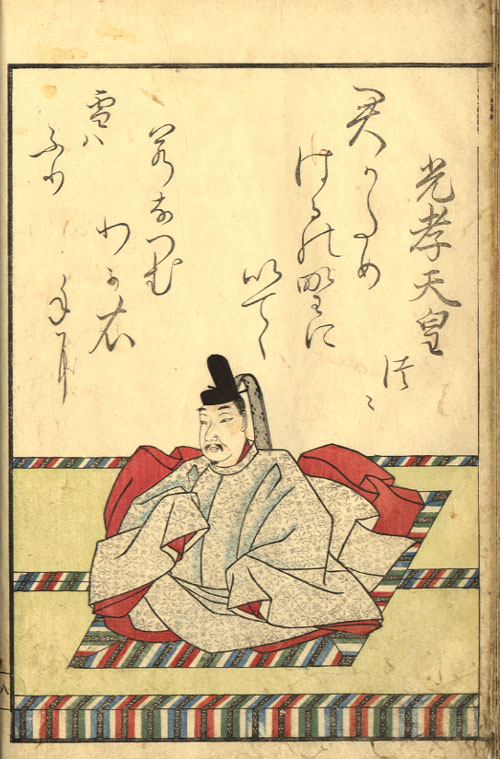 光孝天皇
君かため
はるの野に
いてゝ
若なつむ
わか衣
手に
雪ハ
ふり
つゝ
八